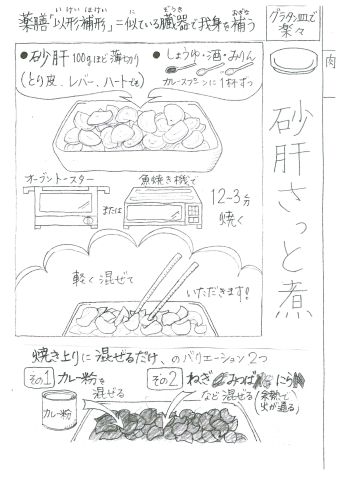 薬膳「以形補形」=似ている臓器で我身を補う
いけいほけい
に
ぞうき
おぎな
グラタン皿で
楽々
肉
砂肝さっと煮
●砂肝 100gほど薄切り
(とり皮、レバー、ハートでも)
●しょうゆ・酒・みりん
カレースプーンに1杯ずつ
オーブントースター
または
魚焼き機で
12〜3分
焼く
軽く混ぜて
いただきます!
焼き上りに混ぜるだけ、のバリエーション2つ
その1 カレー粉を
混ぜる
カレー粉
その2 ねぎ みつば にら
など混ぜる(余熱で
火が通る)